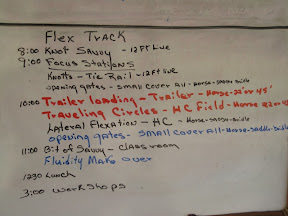 Flex Track
8:00 Knot Savvy - 12 FT Line
9:00 Focus Stations
Knotts - Tie Rail - 12ft line
opening gates - Small Cover All - Horse - Saddle - Bridle
10:00 Trailer loading - Trailer - Horse - 22' or 45'
Traveling Circles - HC Field - Horse 22 or 45'
Lateral Flexation - HC - Horse - Saddle - Bridle
opening gates - Small Cover All - Horse - Saddle - Bridle
11:00 Bit of Savvy - Classroom
Fluidity Make Over
1230 Lunch
3:00 Workshops